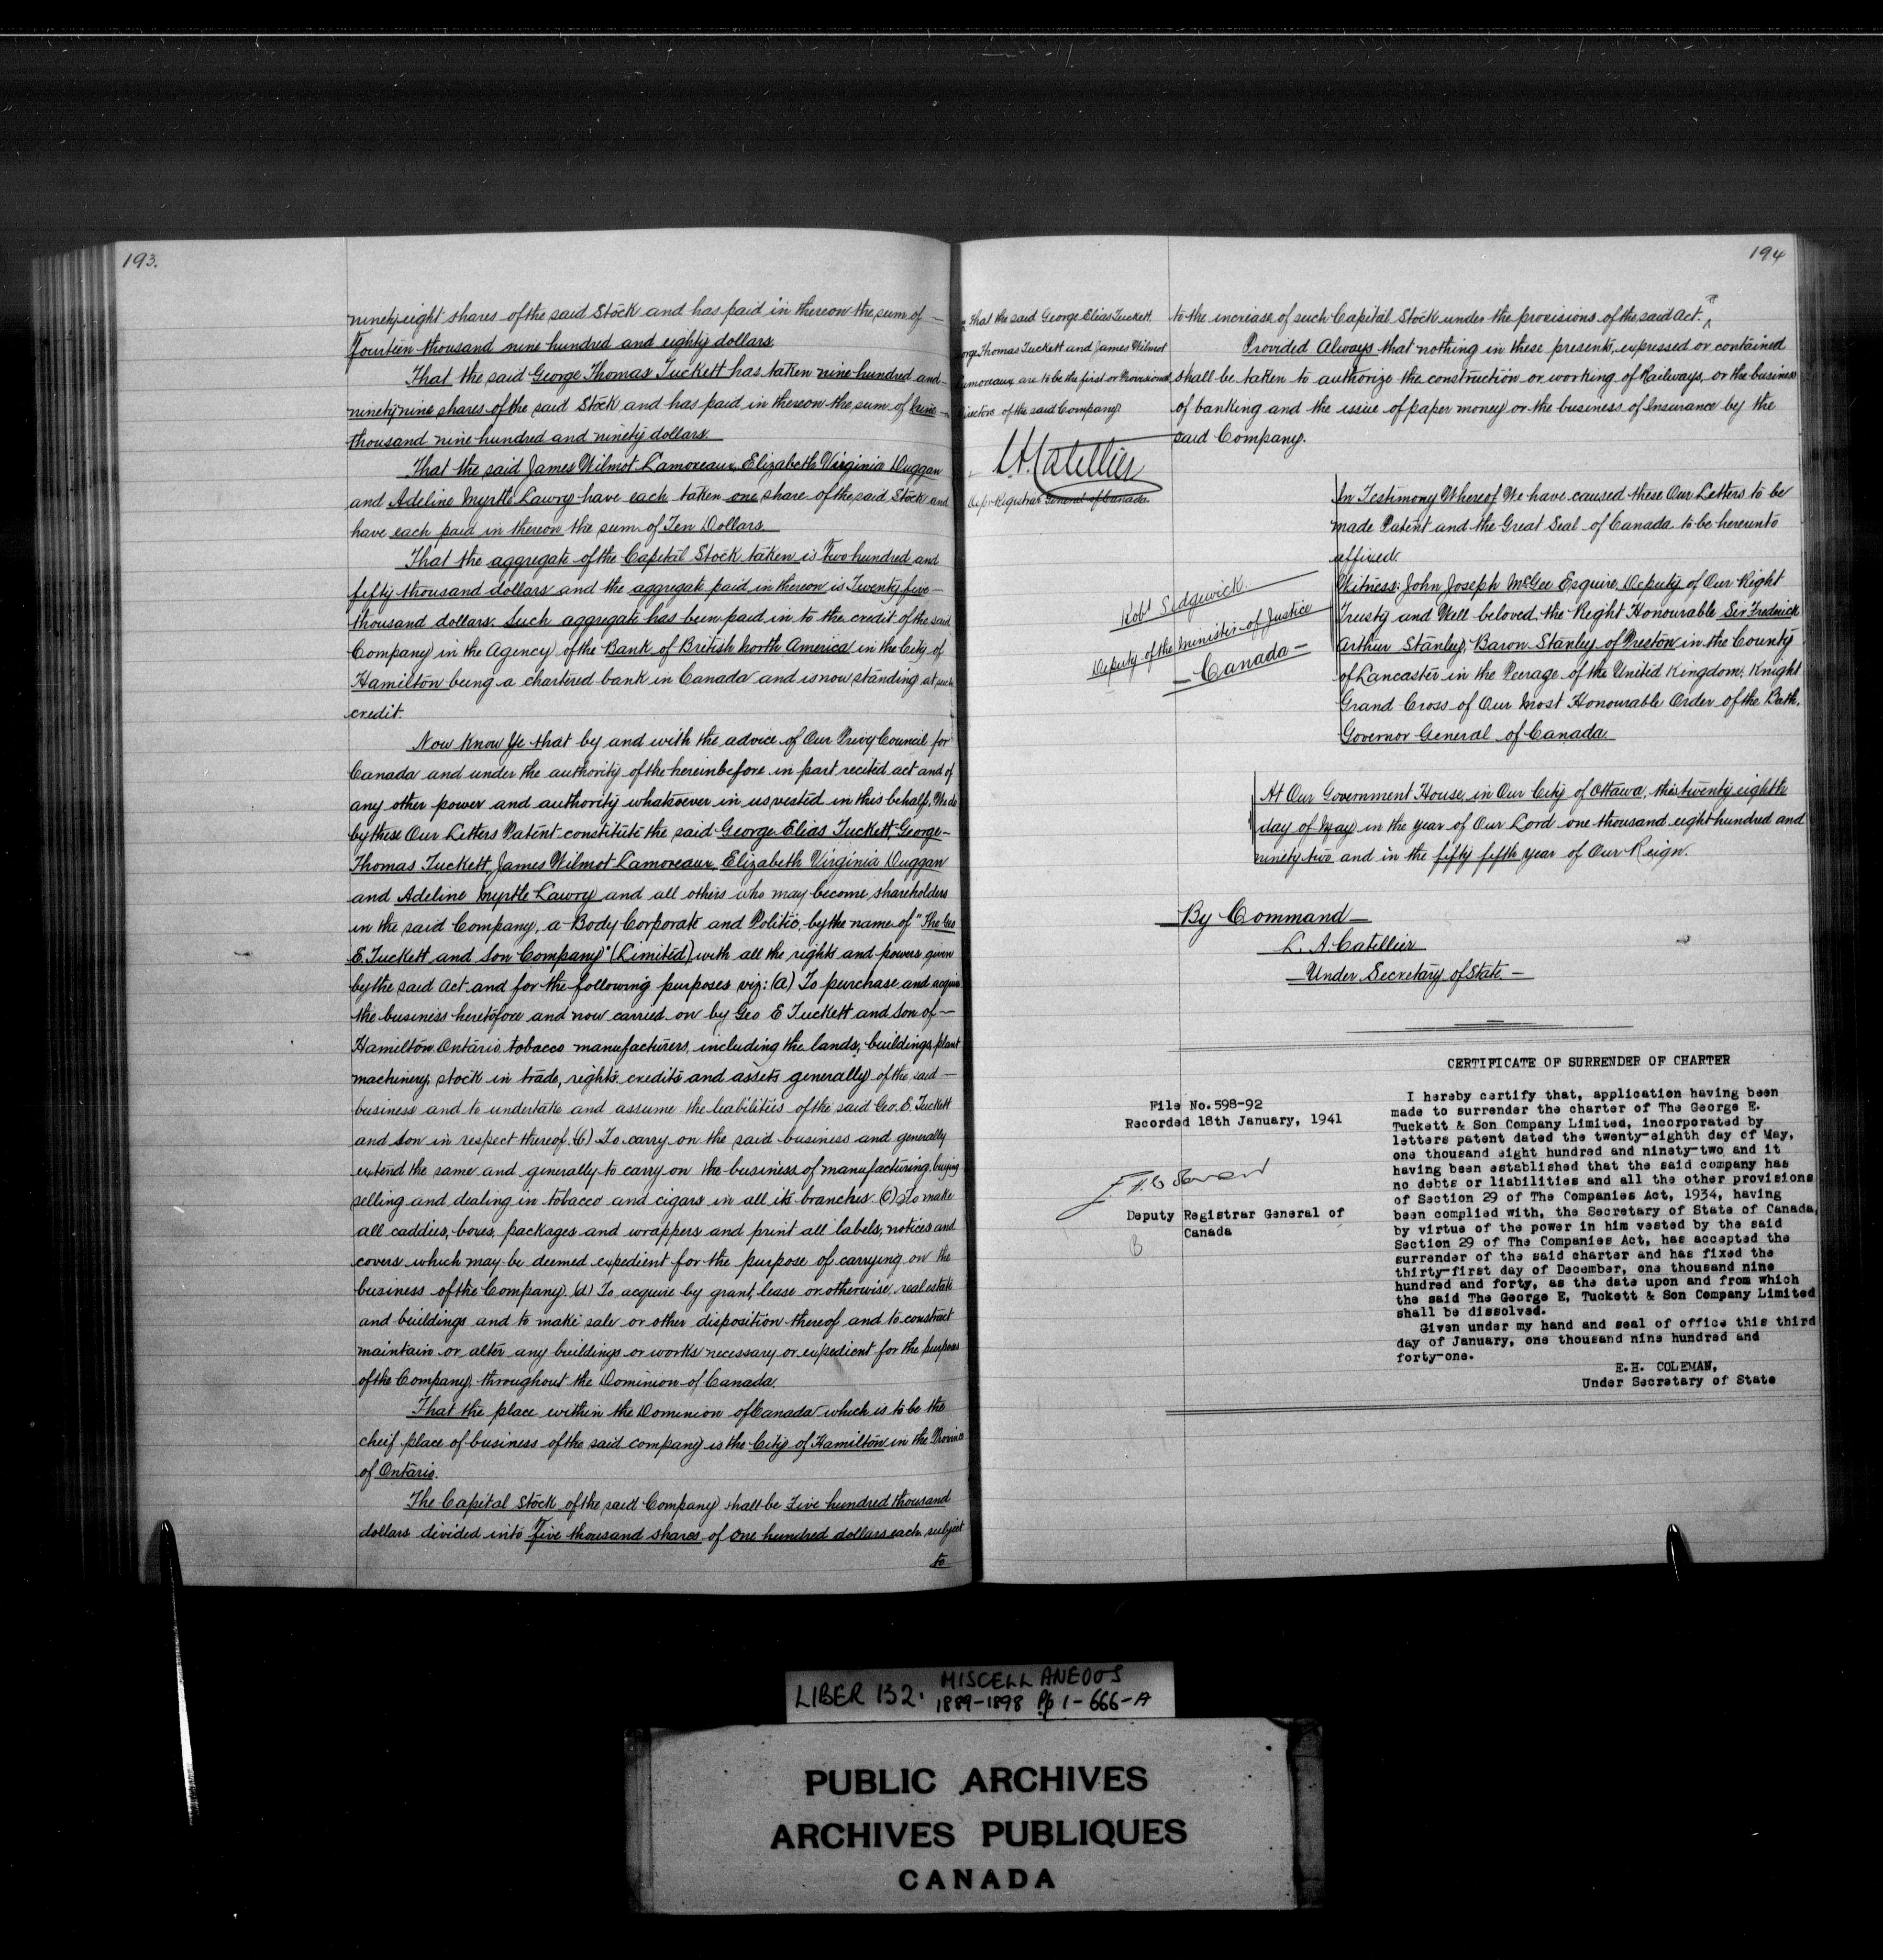 193.
ninety eight shares of the said Stock and has paid in thereon the sum of —
Fourteen thousand nine hundred and eighty dollars.
That the said George Thomas Tuckett has taken nine hundred and
ninety nine shares of the said Stock and has paid in thereon the sum of Nine —
thousand nine hundred and ninety dollars.
That the said James Wilmot Lamoreaux, Elizabeth Virginia Duggan
and Adeline Myrtle Lawry have each taken one share of the said Stock and
have each paid in thereon the sum of Ten Dollars
That the aggregate of the Capital Stock taken is Two hundred and
fifty thousand dollars and the aggregate paid in thereon is Twenty five —
thousand dollars. Such aggregate has been paid in to the credit of the said
Company in the Agency of the Bank of British North America in the City of
Hamilton being a chartered bank in Canada and is now standing at such
credit.
Now Know Ye that by and with the advice of Our Privy Council for
Canada and under the authority of the hereinbefore in part recited act and of
any other power and authority whatsoever in us vested in this behalf, We do
by these Our Letters Patent constitute the said George Elias Tuckett George —
Thomas Tuckett, James Wilmot Lamoreaux, Elizabeth Virginia Duggan
and Adeline Myrtle Lawry and all others who may become shareholders
in the said Company, a Body Corporate and Politic, by the name of "The Geo
E. Tuckett and Son Company" (Limited) with all the rights and powers given
by the said Act and for the following purposes viz: (a) To purchase and acquire
the business heretofore and now carried on by Geo E Tuckett and Son of —
Hamilton Ontario tobacco manufacturers, including the lands, buildings, plant
machinery, stock in trade, rights, credits and assets generally of the said —
business and to undertake and assume the liabilities of the said Geo. E. Tuckett
and Son in respect thereof. (b) To carry on the said business and generally
extend the same and generally to carry on the business of manufacturing, buying
selling and dealing in tobacco and cigars in all its branches. (c) To make
all caddies, boxes, packages and wrappers and print all labels, notices and
covers which may be deemed expedient for the purpose of carrying on the
business of the Company. (d) To acquire by grant, lease or otherwise, real estate
and buildings and to make sale or other disposition thereof and to construct
maintain or alter any buildings or works necessary or expedient for the purposes
of the Company, throughout the Dominion of Canada.
That the place within the Dominion of Canada which is to be the
cheif place of business of the said company is the City of Hamilton in the Province
of Ontario.
The Capital Stock of the said Company shall be Five hundred thousand
dollars divided into Five thousand shares of One hundred dollars each subject
to
194
That the said George Elias Tuckett,
George Thomas Tuckett and James Wilmot
Lamoreaux are to be the first or Provisional
Directors of the said Company
L.A. Catellier
Dep. Registrar General of Canada
to the increase of such Capital Stock under the provisions of the said Act.
Provided Always that nothing in these presents, expressed or contained
shall be taken to authorize the construction or working of Railways, or the business
of banking and the issue of paper money or the business of Insurance by the
said Company.
In Testimony Whereof We have caused these Our Letters to be
made Patent and the Great Seal of Canada to be hereunto
affixed.
Witness: John Joseph McGee Esquire, Deputy of Our Right
Trusty and Well beloved the Right Honourable Sir Frederick
Arthur Stanley, Baron Stanley of Preston in the County
of Lancaster in the Peerage of the United Kingdom; Knight
Grand Cross of Our Most Honourable Order of the Bath,
Governor General of Canada.
Robt Sedgewick
Deputy of the Minister of Justice
— Canada —
At Our Government House, in Our City of Ottawa, this twenty eighth
day of May in the year of Our Lord one thousand eight hundred and
ninety two and in the fifty fifth year of Our Reign.
By Command —
L. A Catellier
— Under Secretary of State —
CERTIFICATE OF SURRENDER OF CHARTER
File No.598-92
Recorded 18th January, 1941
Deputy Registrar General of
Canada
I hereby certify that, application having been
made to surrender the charter of The George E.
Tuckett & Son Company Limited, incorporated by
letters patent dated the twenty-eighth day of May,
one thousand eight hundred and ninety-two and it
having been established that the said company has
no debts or liabilities and all the other provisions
of Section 29 of The Companies Act, 1934, having
been complied with, the Secretary of State of Canada,
by virtue of the power in him vested by the said
Section 29 of The Companies Act, has accepted the
surrender of the said charter and has fixed the
thirty-first day of December, one thousand nine
hundred and forty, as the date upon and from which
the said The George E, Tuckett & Son Company Limited
shall be dissolved.
Given under my hand and seal of office this third
day of January, one thousand nine hundred and
forty-one.
E.H. COLEMAN,
Under Secretary of State
LIBER 132. MISCELLANEOUS
1889-1898 Pp 1-666-A
PUBLIC ARCHIVES
ARCHIVES PUBLIQUES
CANADA